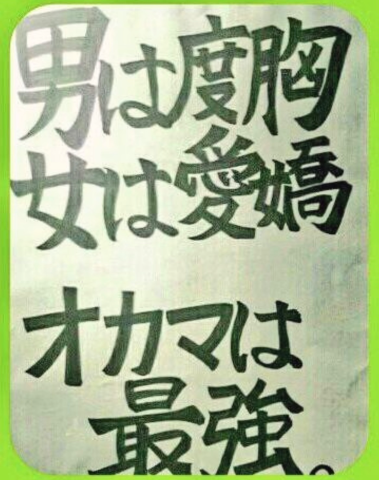 男は度胸
女は愛嬌
オカマは
最強。